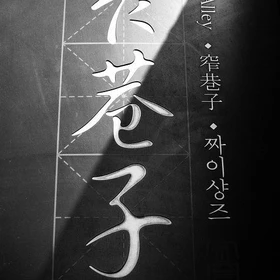 巷子
Alley ◆ 窄巷子 ◆ 짜이샹즈